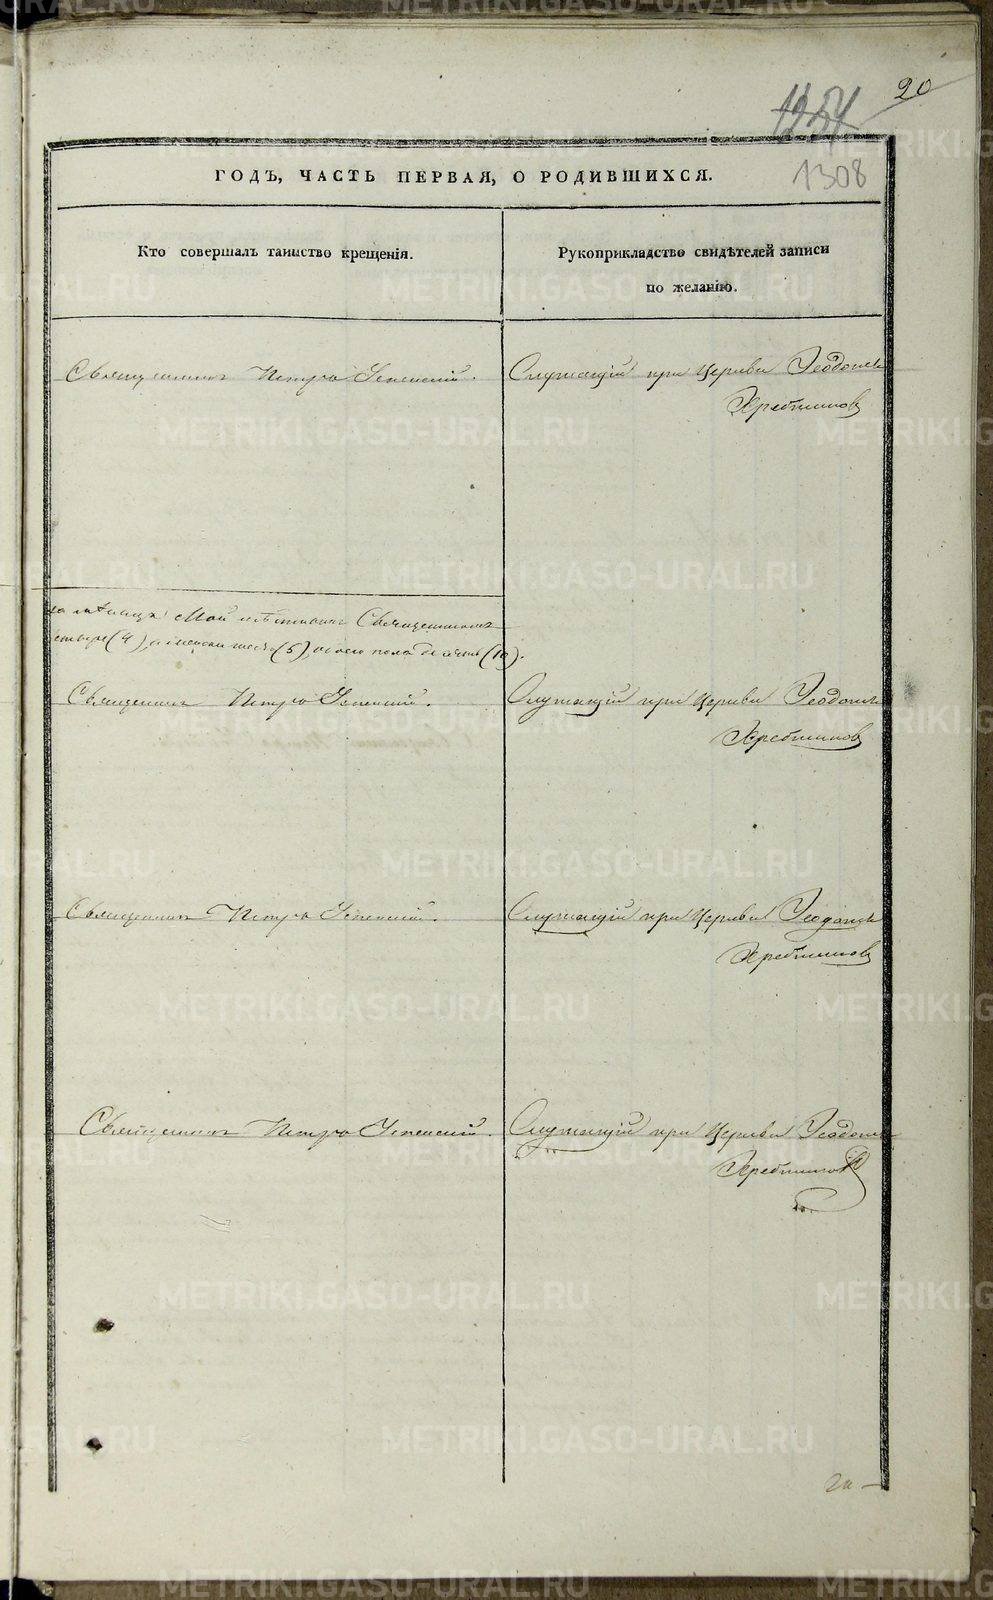 20
1254
1308
ГОДЪ, ЧАСТЬ ПЕРВАЯ, О РОДИВШИХСЯ.
Кто совершалъ таинство крещенія.
Рукоприкладство свидѣтелей записи
по желанію.
Священникъ Петръ Успенскій.
Служащій при Церкви Феодосій
Хребтиковъ
Маѣ мѣсяцѣ Священникомъ
(4), а женска (5), обоего пола (10).
Священникъ Петръ Успенскій.
Служащій при Церкви
Хребтиковъ
Священникъ Петръ Успенскій.
Служащій при Церкви
Хребтиковъ
Священникъ Петръ Успенскій.
Служащій при Церкви
Хребтиковъ
METRIKI.GASO-URAL.RU